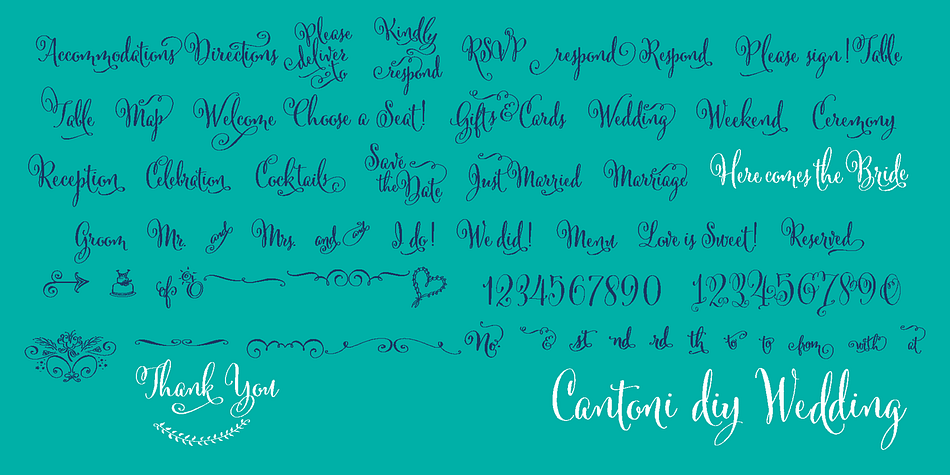 Accommodations Directions Please deliver to Kindly respond RSVP respond Respond Please sign! Table
Table Map Welcome Choose a Seat! Gifts & Cards Wedding Weekend Ceremony
Reception Celebration Cocktails Save the Date Just Married Marriage Here comes the Bride
Groom Mr. and Mrs. and and I do! We did! Menu Love is Sweet! Reserved
of 1234567890 1234567890
No. & st nd rd th to to from with at
Thank You
Cantoni diy Wedding